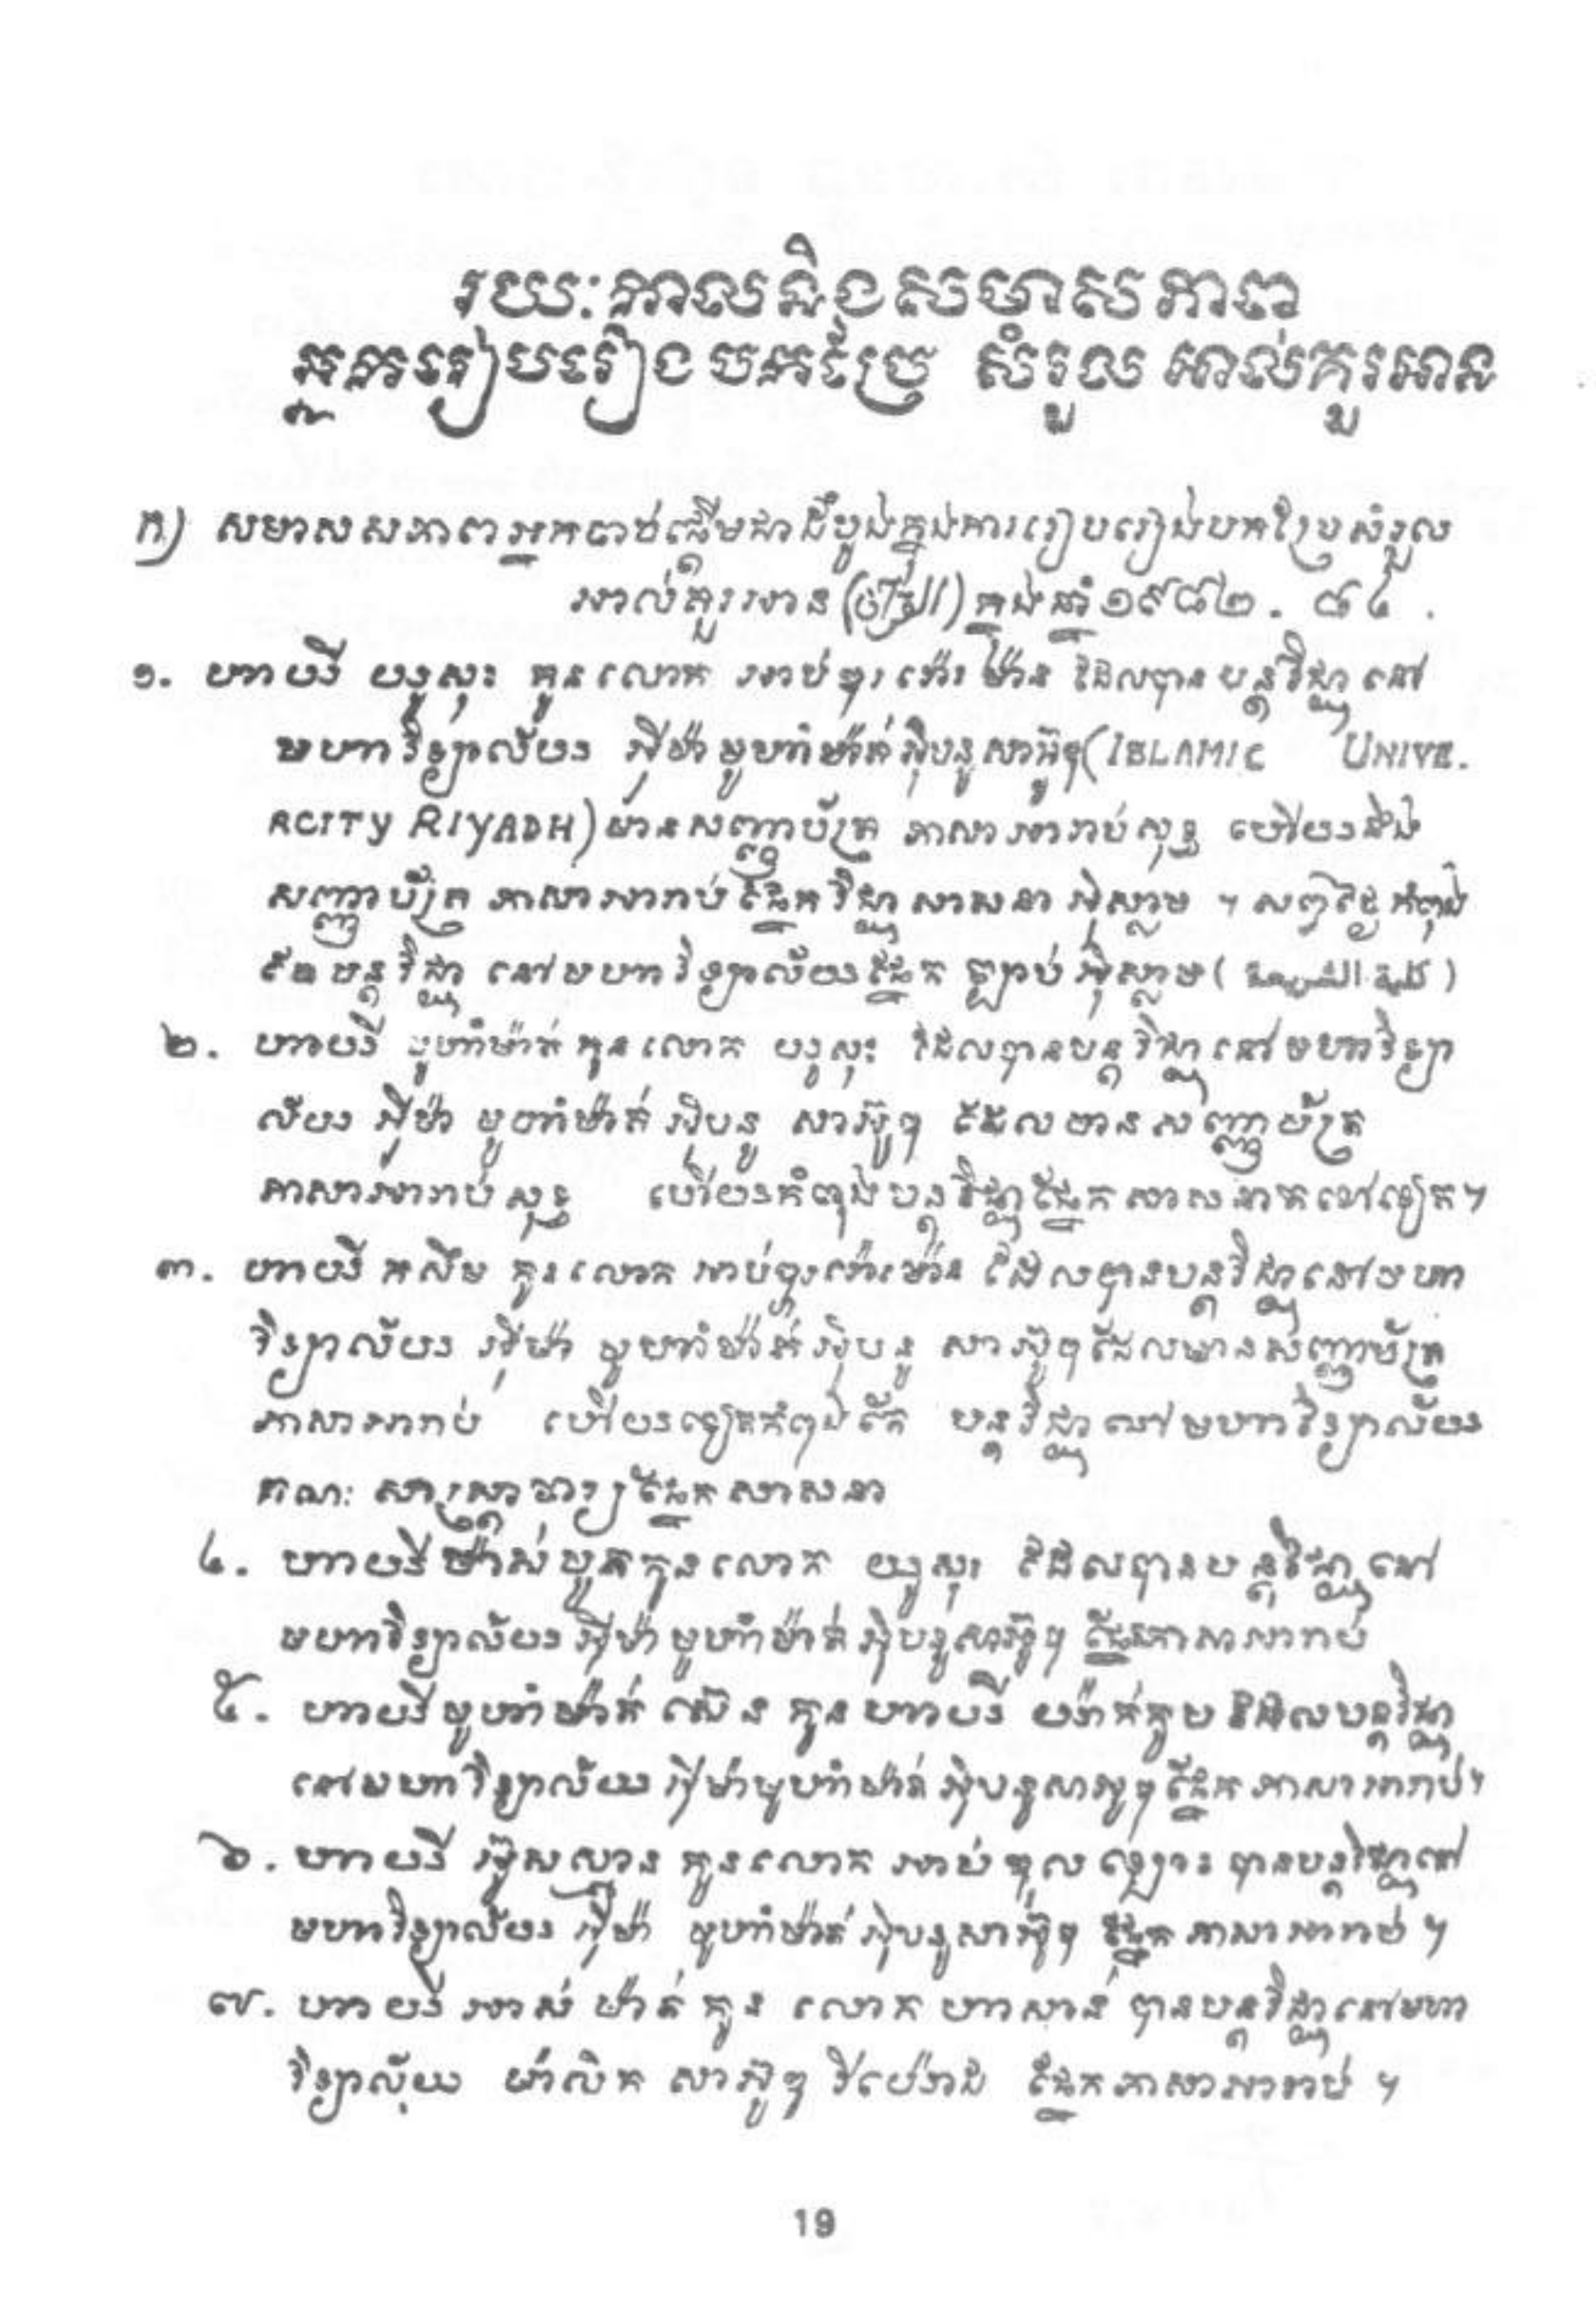 រយៈកាលនិងសមាសភាព
អ្នករៀបរៀងបកប្រែ សំរួល អាល់គួរអាន
ក) សមាសសភាពអ្នកចាប់ផ្តើមជាដំបូងក្នុងការរៀបរៀងបកប្រែសំរួល
អាល់គួរអាន ក្នុងឆ្នាំ១៩៨២. ៨៤ .
១. ហាយរី យូសុះ កូនលោក អាប់ឌុរ៉ោះម៉ាន ដែលបានបន្តវិជ្ជានៅ
មហាវិទ្យាល័យ អ៊ីម៉ាំ មូហាំម៉ាត់ អ៊ិបនូ សាអ៊ូឌ (ISLAMIC UNIVE.
RCITY RIYADH) មានសញ្ញាប័ត្រ ភាសាអារ៉ាប់សុទ្ធ ហើយនិង
សញ្ញាប័ត្រ ភាសាអារ៉ាប់ ផ្នែកវិជ្ជា សាសនា អ៊ិស្លាម ។ សព្វថ្ងៃ កំពុង
តែបន្តវិជ្ជា នៅមហាវិទ្យាល័យផ្នែក ច្បាប់ អ៊ិស្លាម
២. ហាយរី មូហាំម៉ាត់ កូនលោក យូសុះ ដែលបានបន្តវិជ្ជានៅមហាវិទ្យា
ល័យ អ៊ីម៉ាំ មូហាំម៉ាត់ អ៊ិបនូ សាអ៊ូឌ ដែលមានសញ្ញាប័ត្រ
ភាសាអារ៉ាប់សុទ្ធ ហើយកំពុងបន្តវិជ្ជាផ្នែកសាសនាតទៅទៀត។
៣. ហាយរី កសឹម កូនលោក អាប់ឌុរ៉ោះម៉ាន ដែលបានបន្តវិជ្ជានៅមហា
វិទ្យាល័យ អ៊ីម៉ាំ មូហាំម៉ាត់ អ៊ិបនូ សាអ៊ូឌ ដែលមានសញ្ញាប័ត្រ
ភាសាអារ៉ាប់ ហើយទៀតកំពុងតែ បន្តវិជ្ជា នៅមហាវិទ្យាល័យ
គណៈ សាស្ត្រាចារ្យផ្នែកសាសនា
៤. ហាយរី ម៉ាស់ កូនលោក យូសុះ ដែលបានបន្តវិជ្ជានៅ
មហាវិទ្យាល័យ អ៊ីម៉ាំ មូហាំម៉ាត់ អ៊ិបនូសាអ៊ូឌ ផ្នែកភាសាអារ៉ាប់
៥. ហាយរី មូហាំម៉ាត់ កូន ហាយរី ដែលបន្តវិជ្ជា
នៅមហាវិទ្យាល័យ អ៊ីម៉ាំមូហាំម៉ាត់ អ៊ិបនូសាអូឌ ផ្នែក ភាសាអារ៉ាប់។
៦. ហាយរី កូនលោក អាប់ឌុល បានបន្តវិជ្ជានៅ
មហាវិទ្យាល័យ អ៊ីម៉ាំ មូហាំម៉ាត់ អ៊ិបនូសាអ៊ូឌ ផ្នែក ភាសាអារ៉ាប់ ។
៧. ហាយរី អាស់ ម៉ាត់ កូន លោក ហាសាន់ បានបន្តវិជ្ជានៅមហា
វិទ្យាល័យ ម៉ាលិក សាអ៊ូឌ ផ្នែកភាសាអារ៉ាប់ ។
19